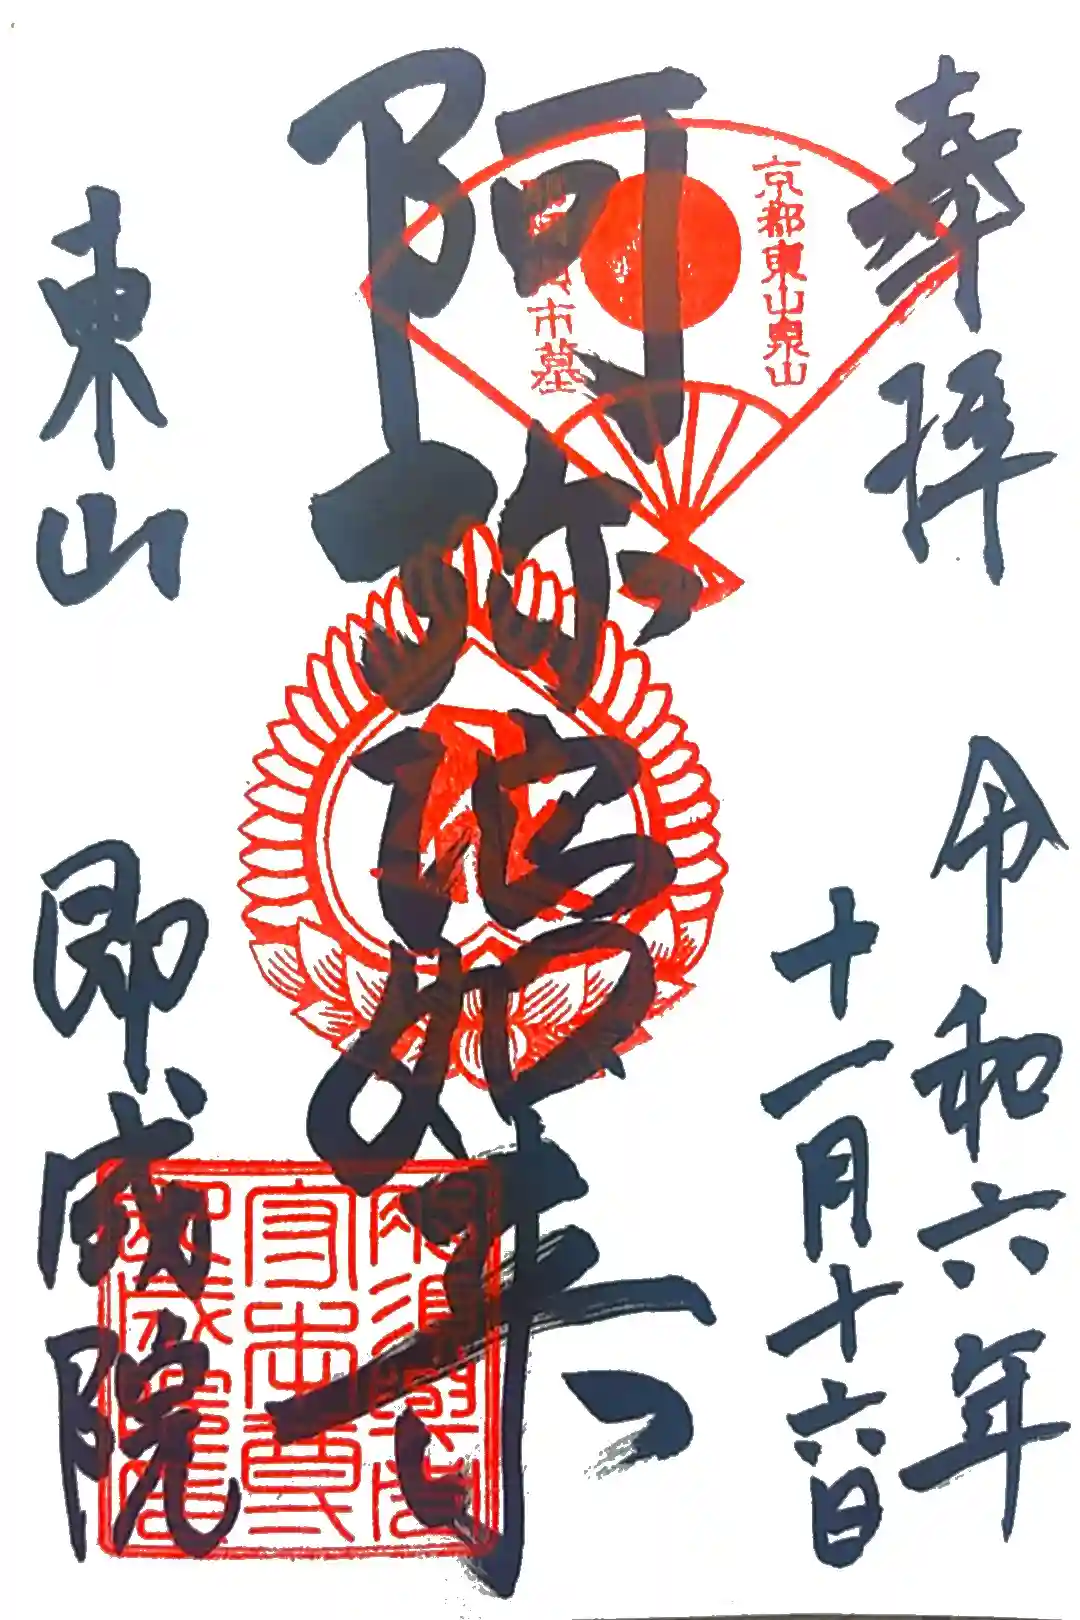 奉拝
令和六年
十一月十六日
京都東山泉山
阿弥陀如来
東山
即成院